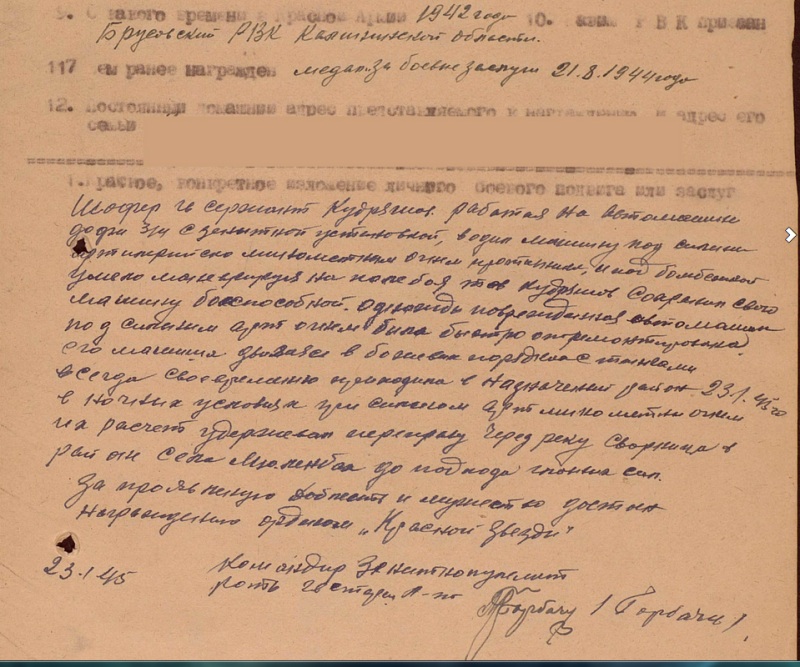 9. С какого времени в Красной Армии 1942 году 10. Каким РВК призван
Брусовский РВК Калининской области.
11. Чем ранее награжден медал. за боевые заслуги 21.8.1944 года
12. Постоянный домашний адрес представляемого к награждению и адрес его
семьи
1. Краткое, конкретное изложение личного боевого подвига или заслуг
Шофер гв сержант Кудряшов работая на автомашине
додж 3/4 с зенитной установкой, водил машину под сильным
артиллерийско минометным огнем противника, и под бомбежкой
умело маневрируя на поле боя тов Кудряшов сохранил свою
машину боеспособной. Однажды поврежденная автомашина
под сильным арт огнем была быстро отремонтирована
его машина двигаясь в боевых порядках с танками
всегда своевременно приходила в назначенный район. 23.1.45 го
в ночных условиях при сильном арт минометном огнем
их расчет удерживал переправу через реку в
район села до подхода главных сил.
За проявленную доблесть и мужество достоин
награждению орденом „Красной Звезды"
23.1.45 Командир Зенитнопулемет
роты гв старш л-нт Горбач / Горбач /